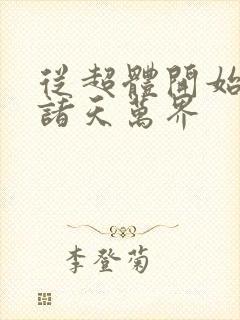 從超體開始
諸天萬界
李登菊